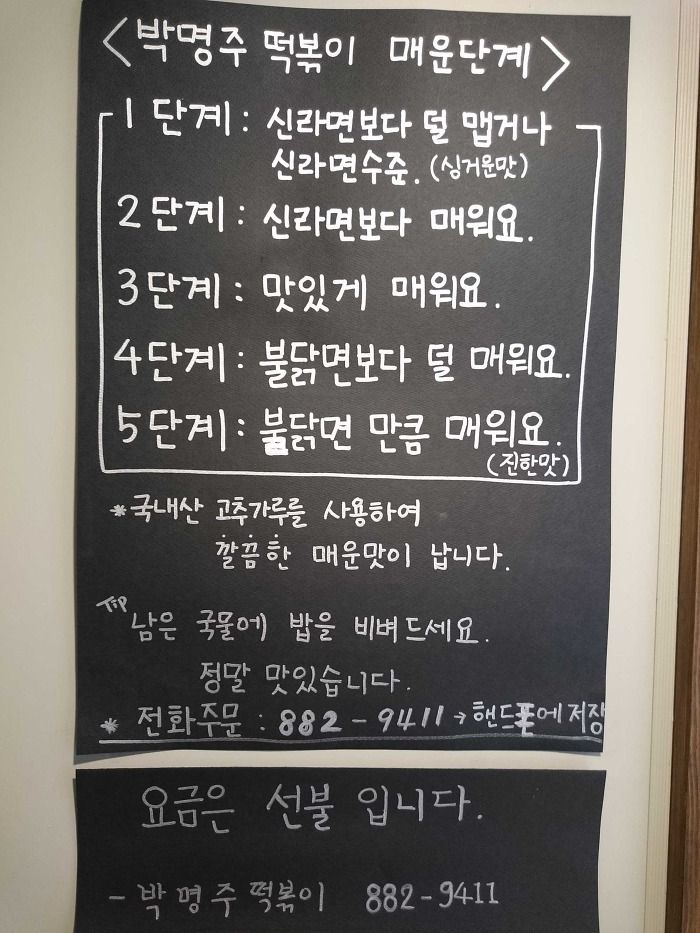 <박명주 떡볶이 매운단계>
1단계: 신라면보다 덜 맵거나
신라면수준. (싱거운맛)
2단계: 신라면보다 매워요.
3단계: 맛있게 매워요.
4단계: 불닭면보다 덜 매워요.
5단계: 불닭면 만큼 매워요.
(진한맛)
*국내산 고추가루를 사용하여
깔끔한 매운맛이 납니다.
Tip 남은 국물에 밥을 비벼드세요.
정말 맛있습니다.
* 전화주문: 882-9411→핸드폰에저장
요금은 선불 입니다.
- 박명주떡볶이 882-9411